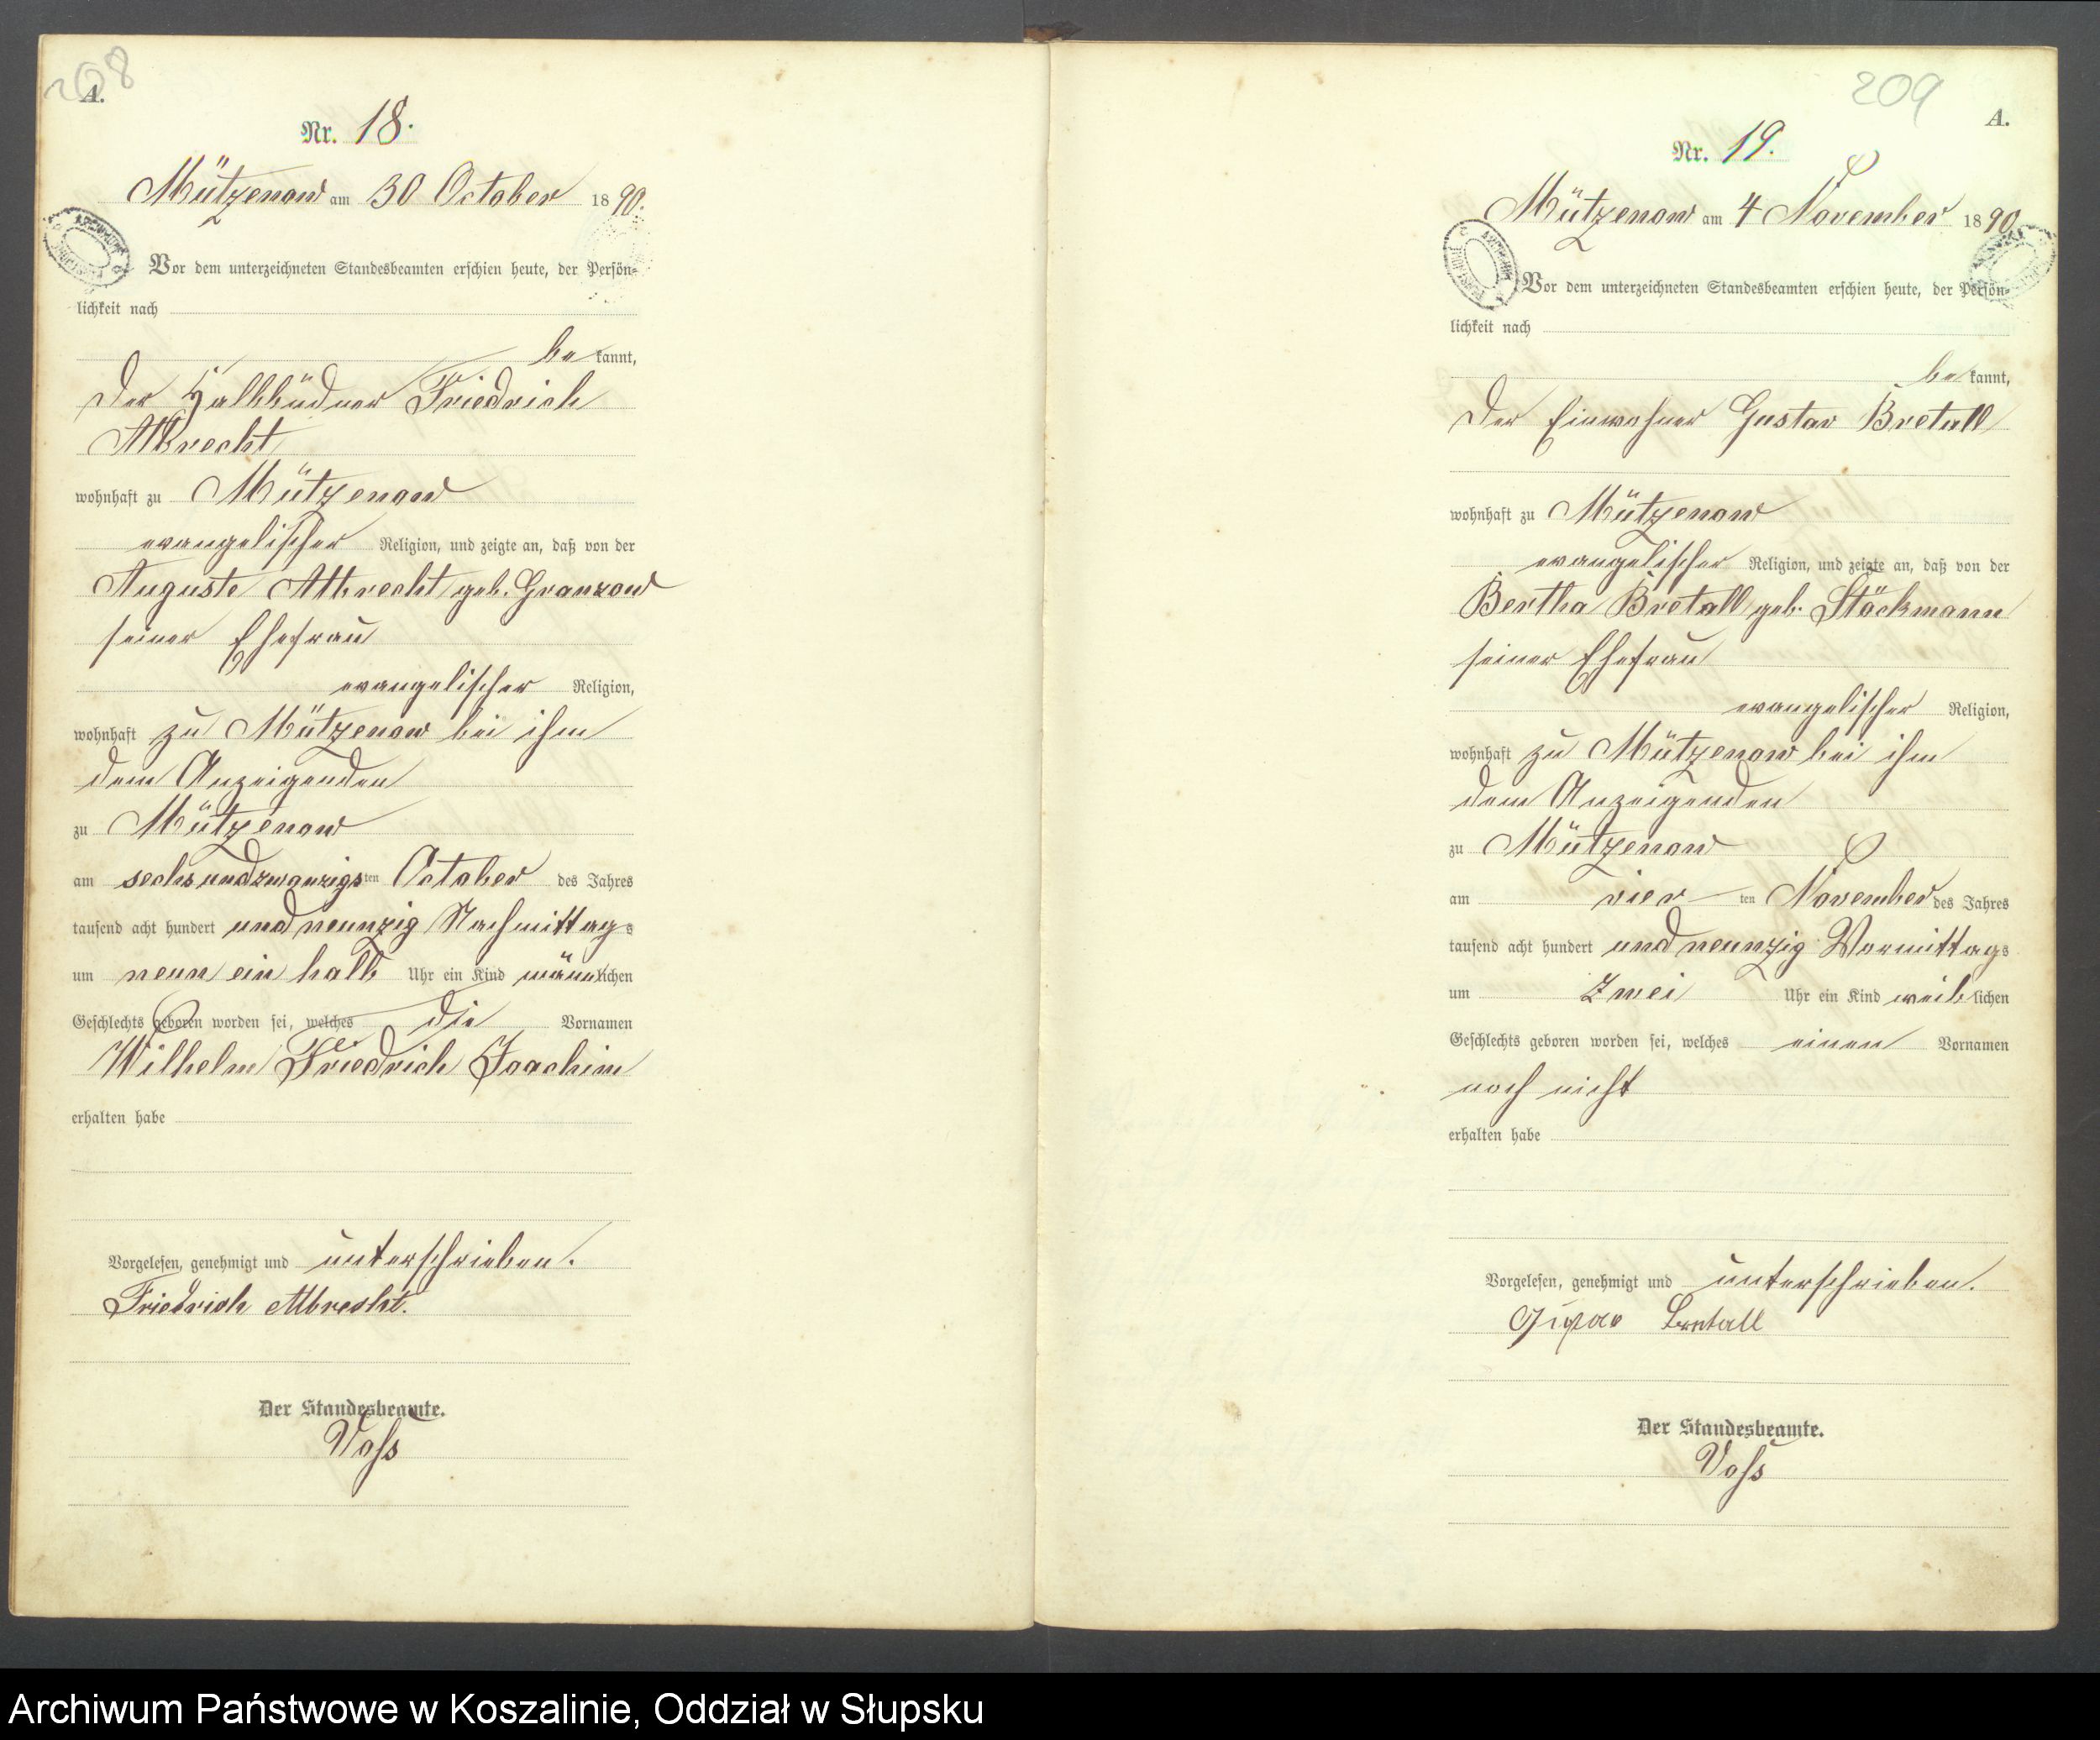 208
A.
Nr. 18.
Mützenow am 30 October 1890.
Vor dem unterzeichneten Standesbeamten erschien heute, der Persön-
lichkeit nach
be kannt,
der Halbbüdner Friedrich
Albrecht
wohnhaft zu Mützenow
evangelischer Religion, und zeigte an, daß von der
Auguste Albrecht geb. Granzow
seiner Ehefrau
evangelischer Religion,
wohnhaft zu Mützenow bei ihm
dem Anzeigenden
zu Mützenow
am sechsundzwanzigsten October des Jahres
tausend acht hundert und neunzig Nachmittags
um neun ein halb Uhr ein Kind männlichen
Geschlechts geboren worden sei, welches die Vornamen
Wilhelm Friedrich Joachim
erhalten habe
Vorgelesen, genehmigt und unterschrieben.
Friedrich Albrecht.
Der Standesbeamte.
Voss
209
A.
Nr. 19.
Mützenow am 4 November 1890
Vor dem unterzeichneten Standesbeamten erschien heute, der Persön-
lichkeit nach
be kannt,
der Einwohner Gustav Bretall
wohnhaft zu Mützenow
evangelischer Religion, und zeigte an, daß von der
Bertha Bretall geb. Stöckmann
seiner Ehefrau
evangelischer Religion,
wohnhaft zu Mützenow bei ihm
dem Anzeigenden
zu Mützenow
am vier ten November des Jahres
tausend acht hundert und neunzig Vormittags
um zwei Uhr ein Kind weiblichen
Geschlechts geboren worden sei, welches einen Vornamen
noch nicht
erhalten habe
Vorgelesen, genehmigt und unterschrieben.
Gustav Bretall
Der Standesbeamte.
Voss
Archiwum Państwowe w Koszalinie, Oddział w Słupsku